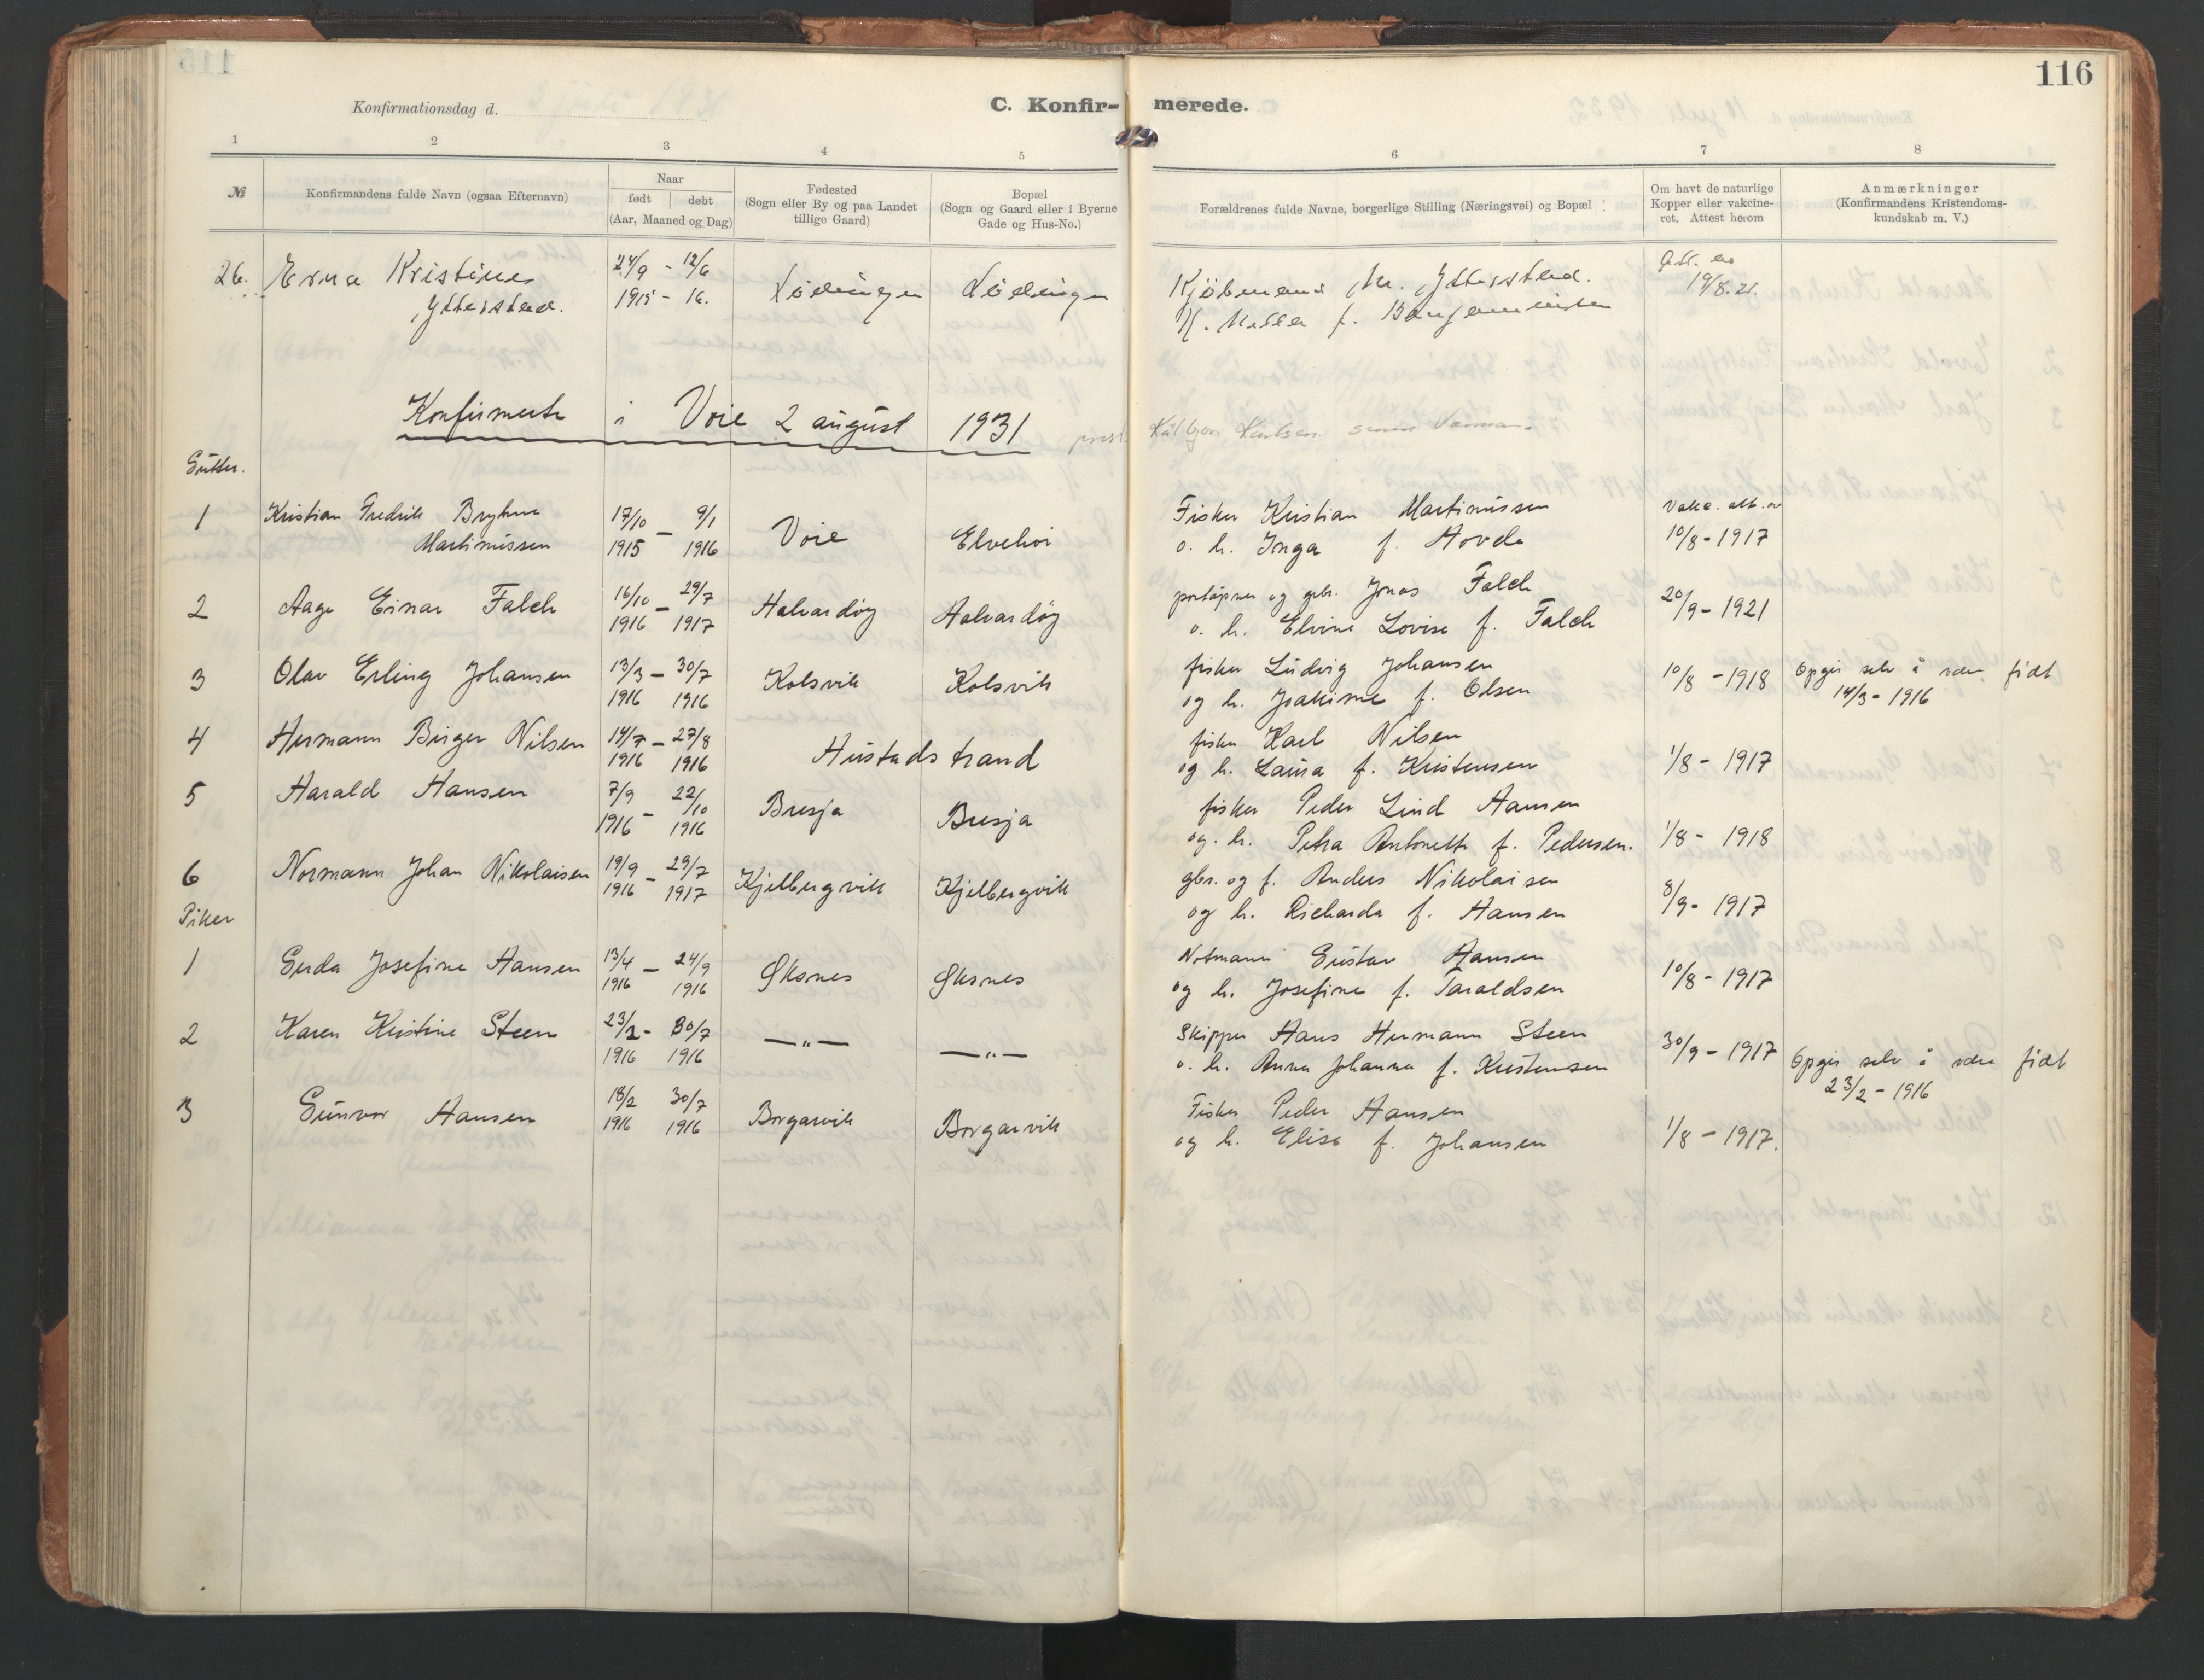 116
Konfirmationsdag d.
C. Konfir-
merede.
1 2 3 4 5 6 7 8
№
Konfirmandens fulde Navn (ogsaa Efternavn)
Naar
født
døbt
(Aar, Maaned og Dag)
Fødested
(Sogn eller By og paa Landet
tillige Gaard)
Bopæl
(Sogn og Gaard eller i Byerne
Gade og Hus-No.)
Forældrenes fulde Navne, borgerlige Stilling (Næringsvei) og Bopæl
Om havt de naturlige
Kopper eller vakcine-
ret. Attest herom
Anmærkninger
(Konfirmandens Kristendoms-
kundskab m. V.)
26. Erna Kristine 24/9 - 12/6 Lødingen Lødingen Kjøbmand M. Ytterstad. Att. av
Ytterstad. 1915 - 16. H. f. Benjaminsen 19/8.21.
Konfirmerte i Voie 2 august 1931
Gutter.
1 Kristian Fredrik Bryhne 17/10 - 9/1 Voie Elvehoi Fisker Kristian Martinussen Vakc. att. av
Martinussen 1915 1916 o. h. Inga f. Hovde 10/8 - 1917
2 Aage Einar Falch 16/10 - 29/7 Halvardøy Halvardøy poståpner og gbr. Jonas Falch 20/9 - 1921
1916 1917 o. h. Elvine Lovise f. Falch
3 Olav Erling Johansen 13/3 - 30/7 Kolsvik Kolsvik fisker Ludvig Johansen 10/8 - 1918 Opgir selv å være født
1916 1916 og h. Joakime f. Olsen 14/3 - 1916
4 Hermann Birger Nilsen 14/7 - 27/8 Hustadstrand fisker Karl Nilsen
1916 1916 og h. Laura f. Kristensen 1/8 - 1917
5 Harald Hansen 7/9 - 22/10 Bresja Bresja fisker Peder Lind Hansen
1916 1916 og h. Petra Antonette f. Pedersen. 1/8 - 1918
6 Normann Johan Nikolaisen 19/9 - 29/7 Kjelbergvik Kjelbergvik gbr. og f. Anders Nikolaisen
1916 1917 og h. Richarda f. Hansen 8/9 - 1917
Piker
1 Gerda Josefine Hansen 13/4 - 24/9 Øksnes Øksnes Notmann Gustav Hansen
1916 1916 og h. Josefine f. Taraldsen 10/8 - 1917
2 Karen Kristine Steen 23/2 - 30/7 — " — — " — Skipper Hans Hermann Steen 30/9 - 1917 Opgir selv å være født
1916 1916 o. h. Anna Johanna f. Kristensen 23/2 - 1916
3 Gunvor Hansen 18/2 30/7 Borgarvik Borgarvik Fisker Peder Hansen
1916 1916 og h. Elise f. Johansen 1/8 - 1917.